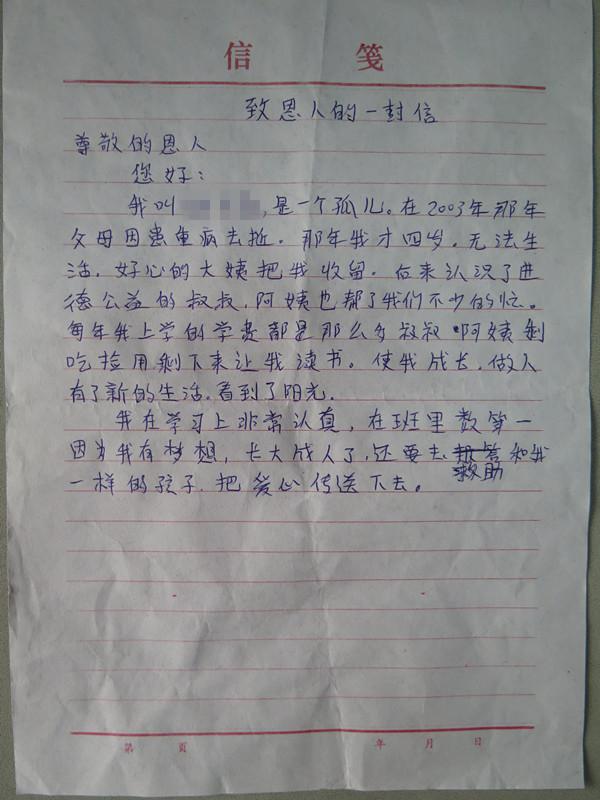 信 笺
致恩人的一封信
尊敬的恩人
您好：
我叫 ,是一个孤儿。在2003年那年
父母因患重病去逝。那年我才四岁。无法生
活。好心的大姨把我收留。后来认识了进
德公益的叔叔，阿姨也帮了我们不少的忙。
每年我上学的学费都是那么多叔叔.啊姨剩
吃捡用剩下来让我读书。使我成长，做人
有了新的生活.看到了阳光.
我在学习上非常认真，在班里数第一
因为我有梦想，长大成人了，还要去救助和我
一样的孩子.把爱心传送下去。
第 页 年 月 日